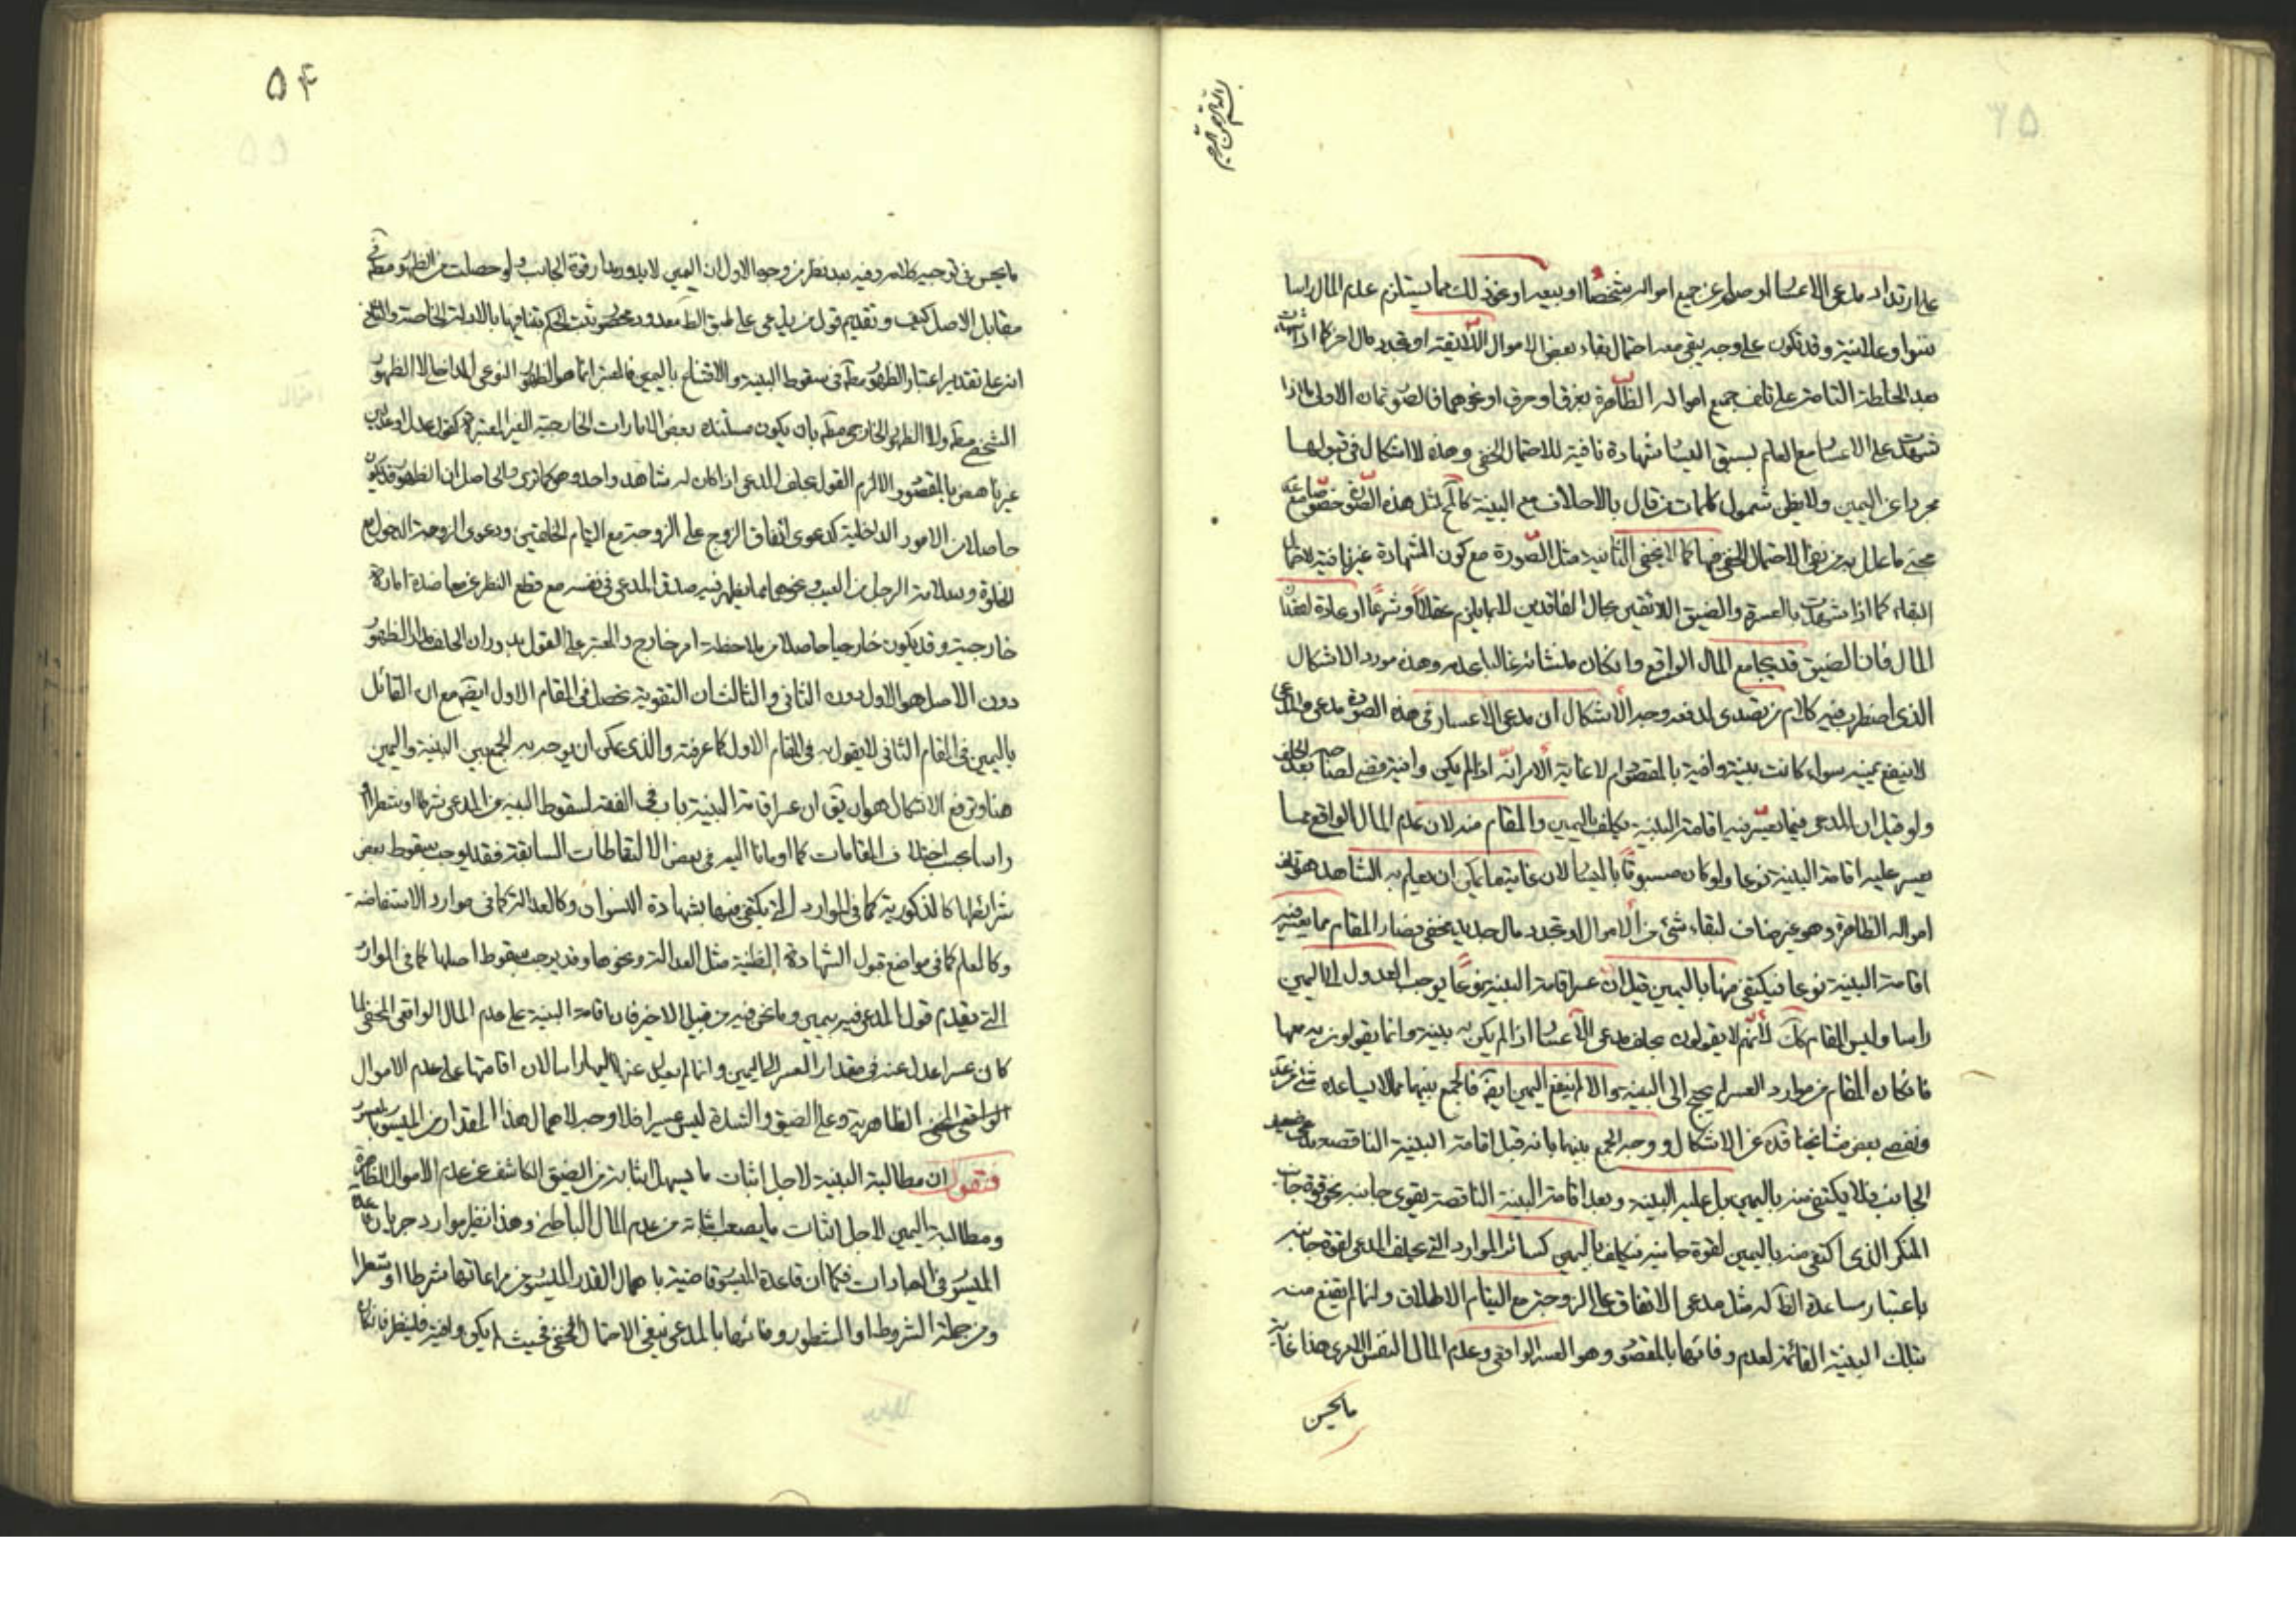 بسم الله الرحمن الرحيم
على ارتداد مدعى الاعسار او صلحه عن جميع امواله شخصا او ببيعه او نحو ذلك مما يستلزم عدم المال راسا
سرا وعلانية وقد تكون على وجه يبقى معه احتمال بقاء بعض الاموال او تجدد مال اخر كما اذا شهدت
بعد الخلطة التامة على تلف جميع امواله الظاهرة بغرق او حرق او نحوهما فالصور ثمان الاولى ما اذا
شهدت على الاعسار مع العلم بسبق اليسار شهادة نافية للاحتمال الخفى وهذه لا اشكال فى قبولها
مجردا عن اليمين ولا يظن شمول كلمات من قال بالاحلاف مع البينة كالـ لمثل هذه الصورة خصوصا مع
ما علل به من نفى الاحتمال الخفى فيها كما لا يخفى الثانية مثل الصورة مع كون الشهادة غير نافية لاحتمال
البقاء كما اذا شهدت بالعسرة والضيق اللائقين بحال الفاقدين للمال عقلا او شرعا او عادة لفقد
المال فان الضيق قد يجامع المال الواقع وان كان منشائه غالبا عدمه وهذه مورد الاشكال
الذى اضطرب فيه كلام من تصدى لدفعه وجه الاشكال ان مدعى الاعسار فى هذه الصورة مدعى والمدعى
لا ينفع يمينه سواء كانت بينته وافية بالمقصود ام لا غاية الامر انه اذا لم يكن وافية
ولو قيل ان المدعى فيما يعسر فيه اقامة البينة يكلف باليمين والمقام منه لان عدم المال الواقع مما
يعسر عليه اقامة البينة نوعا ولو كان مسبوقا باليسار لان غاية ما يمكن ان يعلم به الشاهد هو تلف
امواله الظاهرة وهو غير مناف لبقاء شئ من الاموال او تجدد مال جديد مخفى فصار المقام مما يعسر فيه
اقامة البينة نوعا فيكتفى منها باليمين قيل ان عسر اقامة البينة نوعا يوجب العدول الى اليمين
راسا وليس المقام كك لانهم لا يقولون بحلف مدعى الاعسار اذا لم يكن له بينة وانما يقولون به معها
فان كان المقام من موارد العسر لم يحتج الى البينة والا لم ينفع اليمين ايضا فالجمع بينهما مما لا يساعده شئ
وتفصى بعض مشايخنا قده عن الاشكال ووجه الجمع بينهما بانه قبل اقامة البينة الناقصة مدع ضعيف
الجانب فلا يكتفى منه باليمين بل عليه البينة وبعد اقامة البينة الناقصة يقوى جانبه نحو قوة جانب
المنكر الذى اكتفى منه باليمين لقوة جانبه فيكلف باليمين كسائر الموارد التى يحلف المدعى لقوة جانبه
باعتبار مساعدة الظاهر له مثل مدعى الانفاق على الزوجة مع اليتام الاطلاق وانما لم يقنع منه
بتلك البينة القائمة لعدم وفائها بالمقصود وهو العسر الواقعى وعدم المال النفس الامرى هذا غاية
ما يحسن
۵۴
ما يحسن فى توجيه كلامه وفيه بعد نظر من وجوه الاول ان اليمين لا يدور مدار قوة الجانب ولو حصلت من الظهور مطلقا فى
مقابل الاصل كيف وتقديم قول من يدعى على طبق الظاهر معدود محصور ثبت الحكم فيها بالادلة الخاصة والثانى
انه على تقدير اعتبار الظهور مطلقا فى سقوط البينة والاقتناع باليمين فالمعتبر انما هو الظهور النوعى الداخلى لا الظهور
الشخصى مطلقا ولا الظهور الخارجى مطلقا بان يكون مستنده بعض الامارات الخارجية الغير المعتبرة كقول عدل او عدلين
غير ناهض بالمقصود والا لزم القول بحلف المدعى اذا كان له شاهد واحد وهو كما ترى والحاصل ان الظهور قد يكون
حاصلا من الامور الداخلية كدعوى انفاق الزوج على الزوجة مع اليتام الخلقين ودعوى الزوجة الدخول مع
الخلوة وسلامة الرجل من العيب ونحوهما مما يظهر فيه صدق المدعى فى نفسه مع قطع النظر عن معاضدة امارة
خارجية وقد يكون خارجيا حاصلا من ملاحظة امر خارج والمعتبر على القول بدوران الحلف مدار الظهور
دون الاصل هو الاول دون الثانى والثالث ان التقوية تحصل فى المقام الاول ايضا مع ان القائل
باليمين فى المقام الثانى لا يقول به فى المقام الاول كما عرفت والذى يمكن ان يوجه به الجمع بين البينة واليمين
هنا ويرفع الاشكال هو ان يق ان عسر اقامة البينة باب فى الفقه لسقوط البينة عن المدعى شرطا او شطرا او
راسا بحسب اختلاف المقامات كما اومانا اليه فى بعض الالتقاطات السابقة فقد يوجب سقوط بعض
شرائطها كالذكورية كما فى الموارد التى يكتفى فيها بشهادة النسوان وكالعدالة كما فى موارد الاستفاضة
وكالعلم كما فى مواضع قبول الشهادة الظنية مثل العدالة ونحوها وقد يوجب سقوط اصلها كما فى الموارد
التى يقدم قول المدعى فيه بيمين وما نحن فيه من قبيل الاخر فان اقامة البينة على عدم المال الواقعى الخفى لما
كان عسرا عدل عنه فى مقدار العسر الى اليمين وانما لم يعدل عنها اليها راسا لان اقامتها على عدم الاموال
الواقعى الخفى الظاهرية وعلى الضيق والشدة ليس عسيرا فلا وجه لاهمال هذا المقدار من الميسور بالمعسور
فنقول ان مطالبة البينة لاجل اثبات ما يسهل اثباته من الضيق الكاشف عن عدم الاموال الظاهرة
ومطالبة اليمين لاجل اثبات ما يصعب اثباته من عدم المال الباطنى وهذا نظير موارد جريان قاعدة
الميسور فى العبادات فكما ان قاعدة الميسور قاضية باهمال القدر الميسور من مراعاتها شرطا او شطرا
ومن جملة الشروط او الشطور وفائها بالمدعى بنفى الاحتمال الخفى فحيث لم يكن وافية فلينظر فان كان